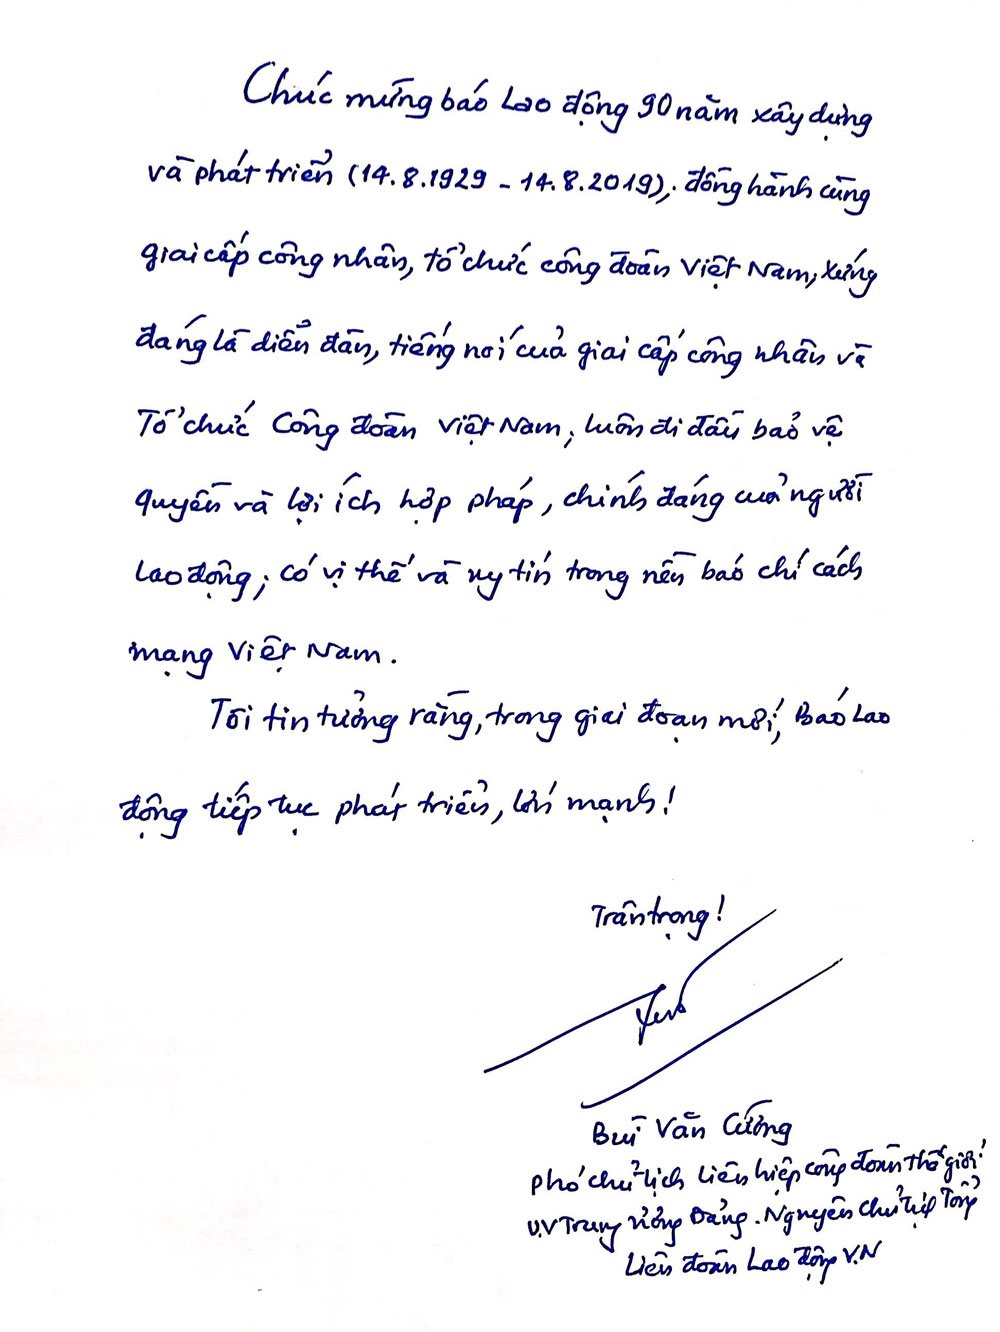 Chúc mừng báo Lao động 90 năm xây dựng
và phát triển (14.8.1929 - 14.8.2019); đồng hành cùng
giai cấp công nhân, tổ chức công đoàn Việt Nam; xứng
đáng là diễn đàn, tiếng nói của giai cấp công nhân và
Tổ chức Công đoàn Việt Nam; luôn đi đầu bảo vệ
quyền và lợi ích hợp pháp, chính đáng của người
lao động; có vị thế và uy tín trong nền báo chí cách
mạng Việt Nam.
Tôi tin tưởng rằng, trong giai đoạn mới, Báo Lao
động tiếp tục phát triển, lớn mạnh!
Trân trọng!
Bùi Văn Cường
Phó chủ tịch Liên hiệp công đoàn thế giới
U.V Trung ương Đảng. Nguyên Chủ tịch Tổng
Liên đoàn Lao động V.N